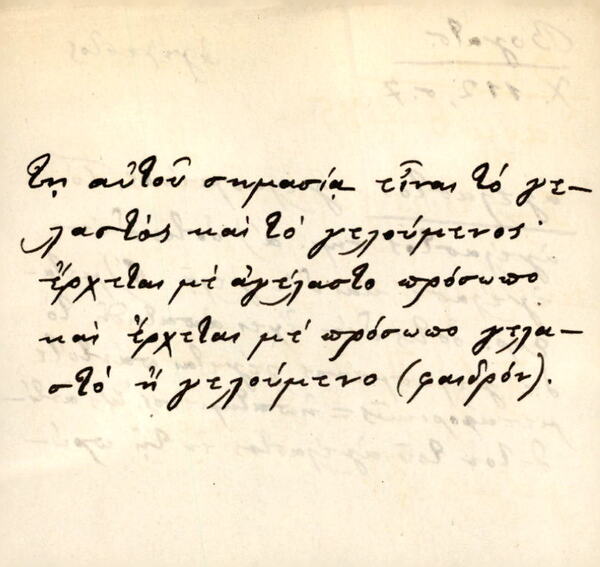 τῃ αὐτοῦ σημασίᾳ εἶναι τό γε-
λαστός καί τό γελούμενος·
ἔρχεται μέ ἀγέλαστο πρόσωπο
καί ἔρχεται μέ πρόσωπο γελα-
στό ἤ γελούμενο (φαιδρόν).